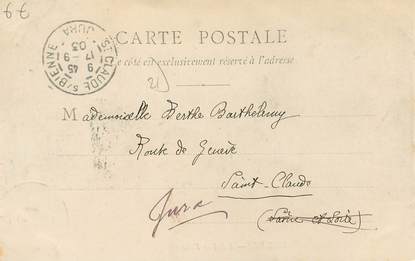 99
CARTE POSTALE
Ce côté est exclusivement réservé à l'adresse
ST CLAUDE S/BIENNE
9 45
17 - 9
03
JURA
Mademoiselle Berthe Barthelemy
Route de Genève
Saint-Claude
Jura
(Saône et Loire)